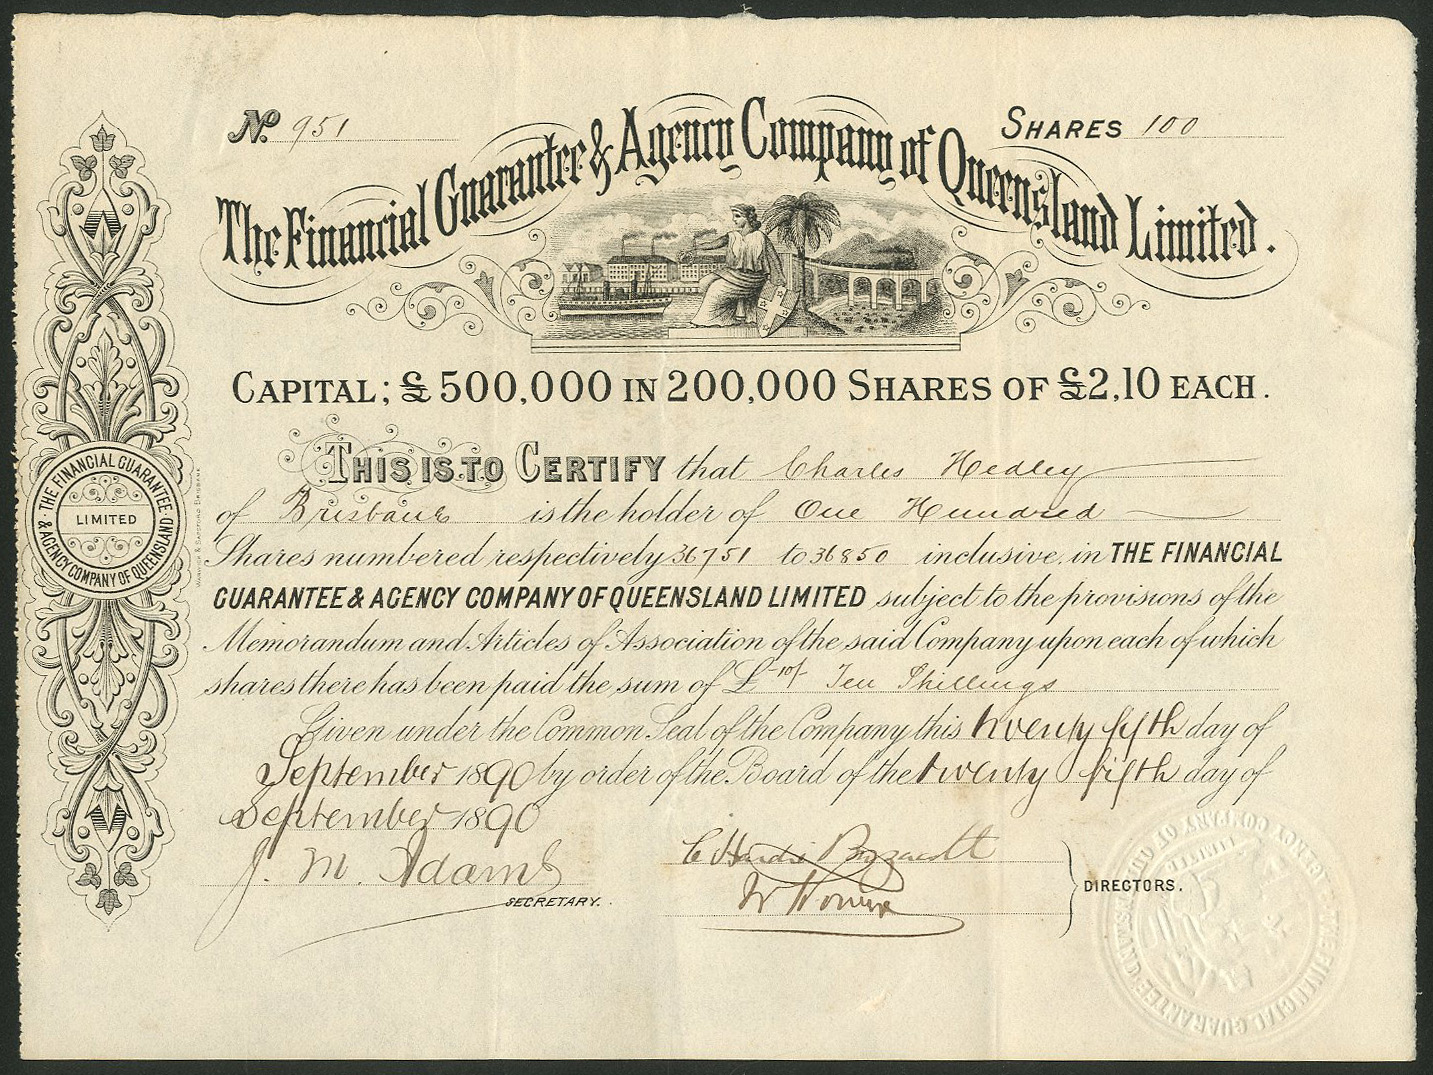 No. 951
SHARES 100
The Financial Guarantee & Agency Company of Queensland Limited.
CAPITAL; £500,000 IN 200,000 SHARES OF £2,10 EACH.
THIS IS TO CERTIFY that Charles Hedley
of Brisbane is the holder of One Hundred
Shares numbered respectively 36751 to 36850 inclusive, in THE FINANCIAL
GUARANTEE & AGENCY COMPANY OF QUEENSLAND LIMITED subject to the provisions of the
Memorandum and Articles of Association of the said Company upon each of which
shares there has been paid the sum of £ 10/- Ten Shillings
Given under the Common Seal of the Company this twenty fifth day of
September 1890 by order of the Board of the twenty fifth day of
September 1890
J. M. Adams
SECRETARY.
C Hardie Buzacott
DIRECTORS.
THE FINANCIAL GUARANTEE
& AGENCY COMPANY OF QUEENSLAND
LIMITED
WARWICK & SAPSFORD BRISBANE
THE FINANCIAL GUARANTEE & AGENCY COMPANY OF QUEENSLAND
LIMITED